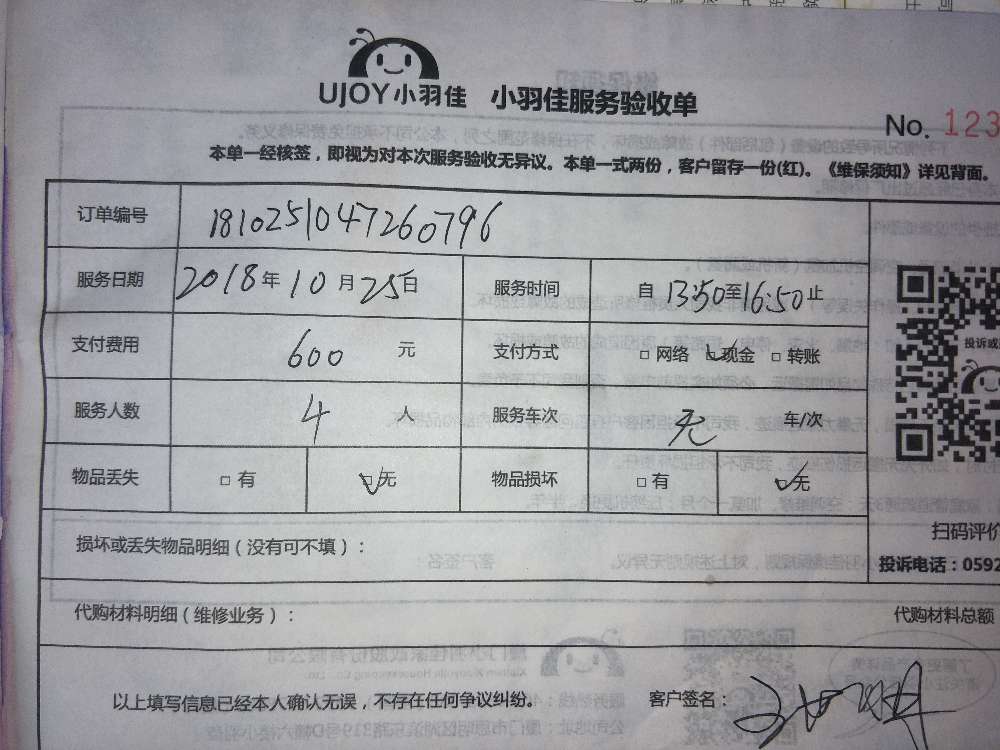 UJOY小羽佳 小羽佳服务验收单
No. 123
本单一经核签，即视为对本次服务验收无异议。本单一式两份，客户留存一份(红)。《维保须知》详见背面。
订单编号 1810251047260796
服务日期 2018年10月25日 服务时间 自13:50至16:50止
支付费用 600 元 支付方式 □ 网络 ☑现金 □ 转账
投诉或
服务人数 4 人 服务车次 无 车/次
物品丢失 □ 有 ☑无 物品损坏 □有 ☑无
损坏或丢失物品明细（没有可不填）：
扫码评价
投诉电话：0592
代购材料明细（维修业务）： 代购材料总额
以上填写信息已经本人确认无误，不存在任何争议纠纷。 客户签名：